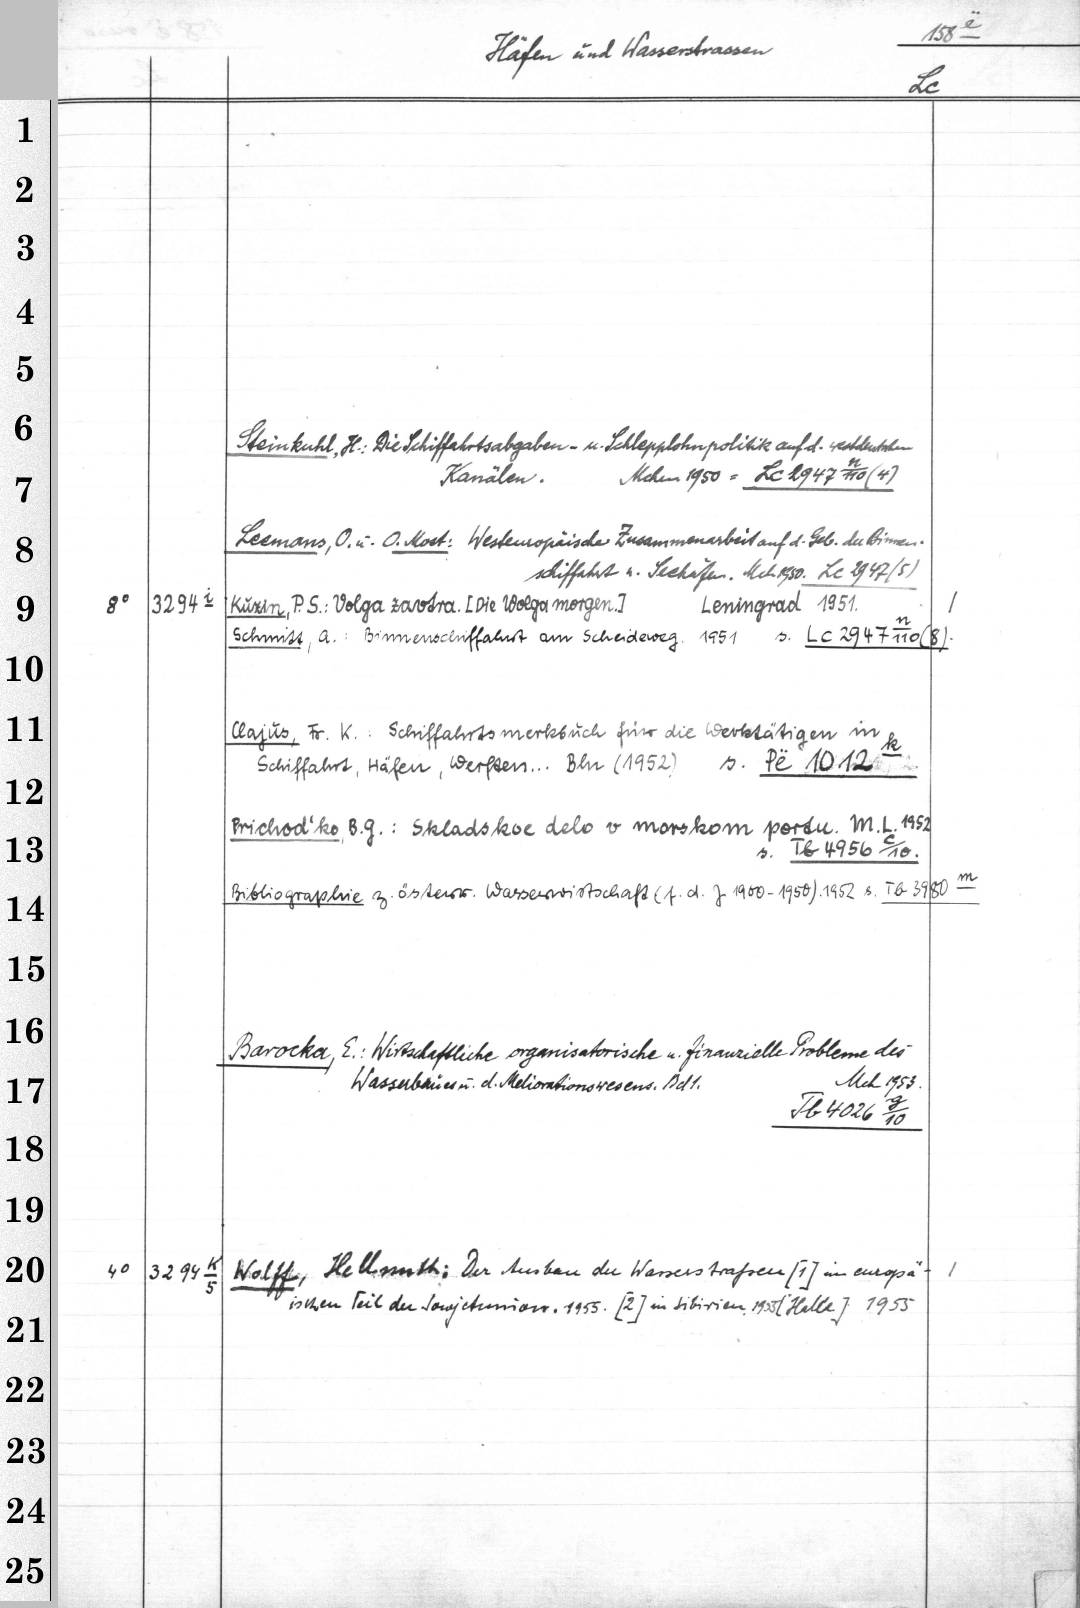 158 ë
Häfen und Wasserstrassen
Lc
1
2
3
4
5
6
Steinkuhl, H.: Die Schiffahrtsabgaben- u. Schlepplohnpolitik auf d. westdeutschen
7
Kanälen. Mchen 1950 = Lc 2947 n/110 (4)
8
Leemans, O. u. O. Most: Westeuropäische Zusammenarbeit auf d. Geb. der Binnen-
schiffahrt u. Seehäfen. Mch 1950. Lc 2947 (5)
9
8° 3294 i Kuzin, P.S.: Volga zavtra. [Die Wolga morgen.] Leningrad 1951. 1
Schmitt, A.: Binnenschiffahrt am Scheideweg. 1951 s. Lc 2947 n/110 (8).
10
11
Clajus, Fr. K.: Schiffahrtsmerkbuch für die Werktätigen in
Schiffahrt, Häfen, Werften... Bln (1952) s. Pë 1012 k
12
Prichod'ko, B.g.: Skladskoe delo v morskom portu. M.L. 1952
13
s. Tb 4956 c/10.
Bibliographie z. österr. Wasserwirtschaft (f. d. J 1900-1950). 1952 s. Tb 3980 m
14
15
16
Barocka, E.: Wirtschaftliche organisatorische u. finanzielle Probleme des
17
Wasserbaues u. d. Meliorationswesens. Bd 1. Mch 1953.
Tb 4026 g/10
18
19
20
4° 3294 k/5 Wolff, Hellmuth: Der Ausbau der Wasserstrafsen [1] im europä- 1
ischen Teil der Sowjetunion. 1955. [2] in Sibirien. 1955 [Halle] 1955
21
22
23
24
25